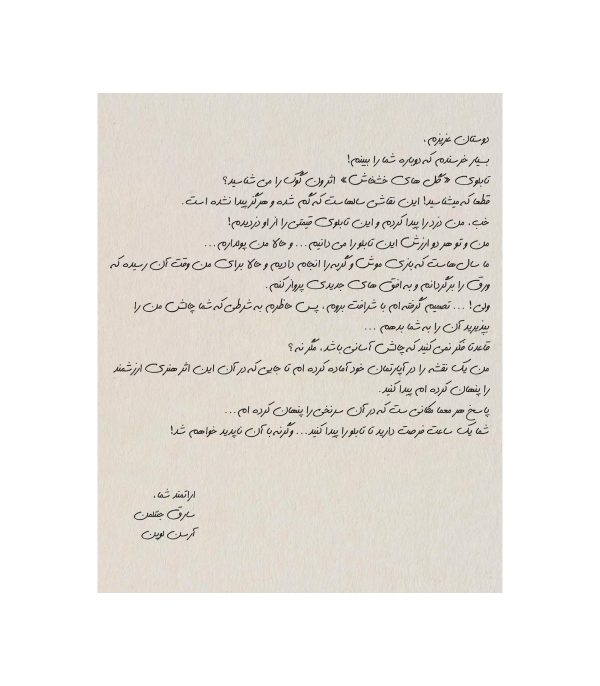 دوستان عزیزم،
بسیار خرسندم که دوباره شما را ببینم!
تابلوی «گل های خشخاش» اثر ون گوگ را می شناسید؟
قطعا که میشناسید! این نقاشی سالهاست که گم شده و هرگز پیدا نشده است.
خب، من دزد را پیدا کردم و این تابلوی قیمتی را از او دزدیدم!
من و تو هر دو ارزش این تابلو را می دانیم... و حالا من پولدارم...
ما سال هاست که بازی موش و گربه را انجام دادیم و حالا برای من وقت آن رسیده که
ورق را برگردانم و به افق های جدیدی پرواز کنم.
ولی! ... تصمیم گرفته ام با شرافت بروم، پس حاظرم به شرطی که شما چالش من را
بپذیرید آن را به شما بدهم ...
قاعدتا فکر نمی کنید که چالش آسانی باشد، مگر نه؟
من یک نقشه را در آپارتمان خود آماده کرده ام تا جایی که در آن این اثر هنری ارزشمند
را پنهان کرده ام پیدا کنید.
پاسخ هر معما مکانی ست که در آن سرنخی را پنهان کرده ام...
شما یک ساعت فرصت دارید تا تابلو را پیدا کنید... وگرنه با آن ناپدید خواهم شد!
ارادتمند شما،
سارق جنتلمن
آرسن لوپن